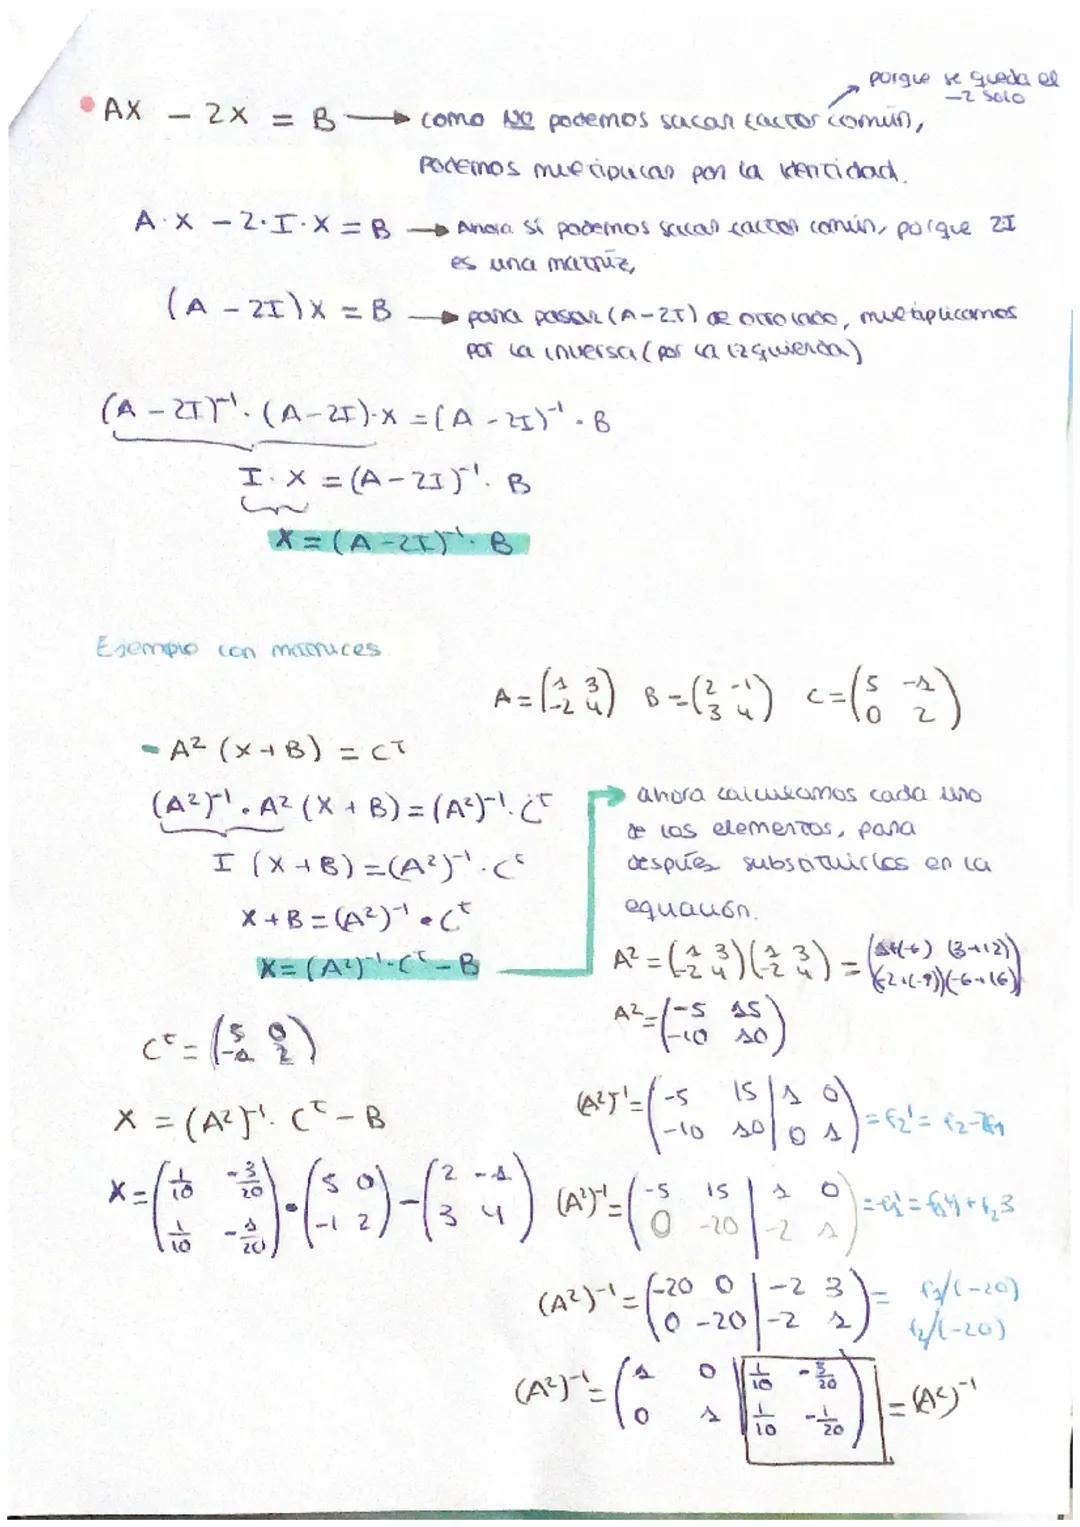 porque se queda el
-2 solo
• AX - 2X = B → como NO podemos sacar factor común,
podemos multiplicar por la identidad.
A·X - 2·I·X = B → Ahora sí podemos sacar factor común, porque 2I
es una matriz,
(A - 2I)X = B → para pasar (A-2I) de otro lado, multiplicamos
por la inversa (por la izquierda)
(A - 2I)⁻¹·(A-2I)·X = (A - 2I)⁻¹·B
I·X = (A-2I)⁻¹·B
X = (A-2I)⁻¹·B
Ejemplo con matrices
A = (1 3 / -2 4) B = (2 -1 / 3 4) C = (5 -1 / 0 2)
- A² (X+B) = Cᵗ
(A²)⁻¹·A² (X + B) = (A²)⁻¹·Cᵗ
I (X+B) = (A²)⁻¹·Cᵗ
X + B = (A²)⁻¹·Cᵗ
X = (A²)⁻¹·Cᵗ - B
ahora calculamos cada uno
de los elementos, para
después substituirlos en la
equación.
A² = (1 3 / -2 4)(1 3 / -2 4) = (1+(-6) (3+12) / (-2+(-8)) (-6+16))
A² = (-5 15 / -10 10)
Cᵗ = (5 0 / -1 2)
X = (A²)⁻¹·Cᵗ - B
X = (1/10 -3/20 / 1/10 -1/20)·(5 0 / -1 2) - (2 -1 / 3 4)
(A²)⁻¹ = (-5 15 | 1 0 / -10 10 | 0 1) = f₂' = f₂-2f₁
(A²)⁻¹ = (-5 15 | 1 0 / 0 -20 | -2 1) = f₁' = f₁4 + f₂3
(A²)⁻¹ = (-20 0 | -2 3 / 0 -20 | -2 1) = f₁/(-20)
f₂/(-20)
(A²)⁻¹ = (1 0 | 1/10 -3/20 / 0 1 | 1/10 -1/20) = (A²)⁻¹